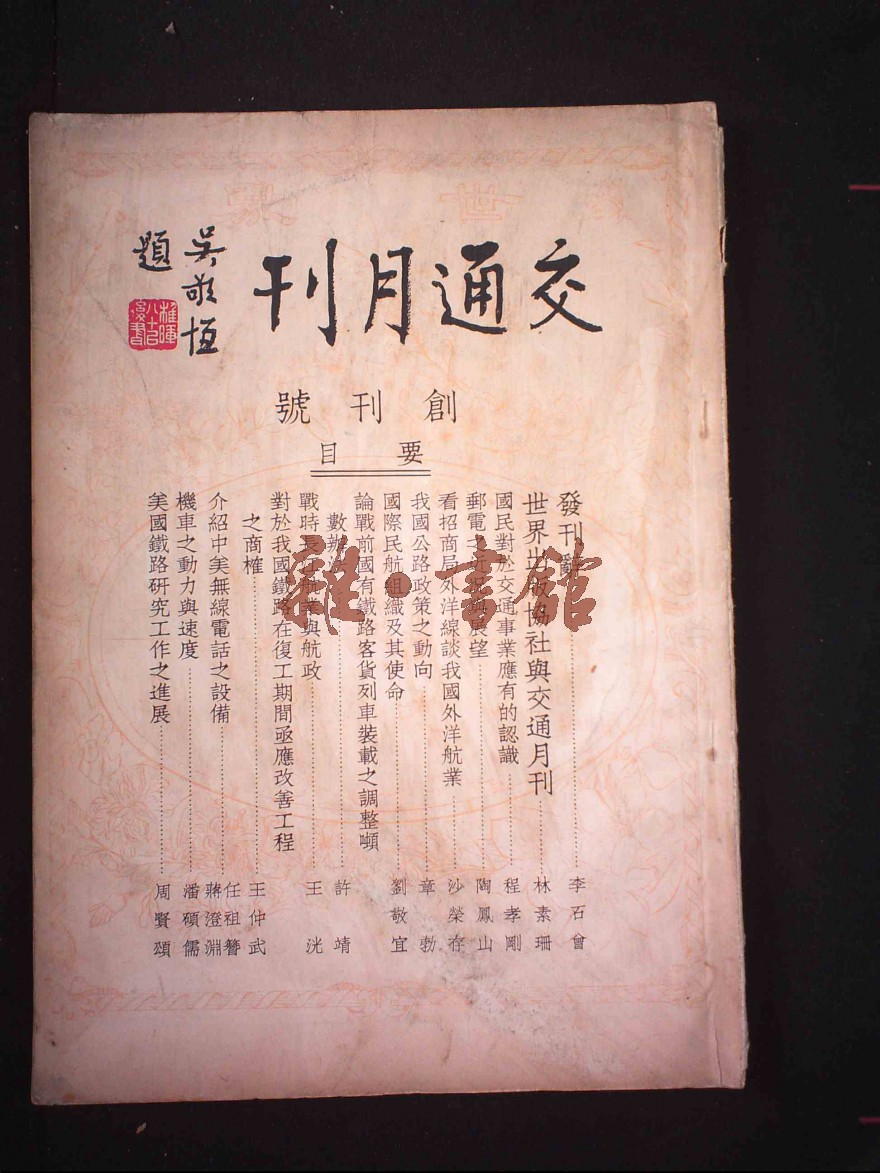 世界
交通月刊
吳敬恆
題
稚暉
八十
後書
創刊號
要目
發刊辭 李石曾
世界出版協社與交通月刊 林素珊
國民對於交通事業應有的認識 程孝剛
郵電之近況與展望 陶鳳山
看招商局外洋線談我國外洋航業 沙榮存
我國公路政策之動向 章勃
國際民航組織及其使命 劉敬宜
論戰前國有鐵路客貨列車裝載之調整噸
數辦 許靖
戰時長江航業與航政 王洸
對於我國鐵路在復工期間亟應改善工程
之商榷 王仲武
介紹中美無線電話之設備 任祖簪 蔣澄淵
機車之動力與速度 潘碩儒
美國鐵路研究工作之進展 周賢頌
雜·書館